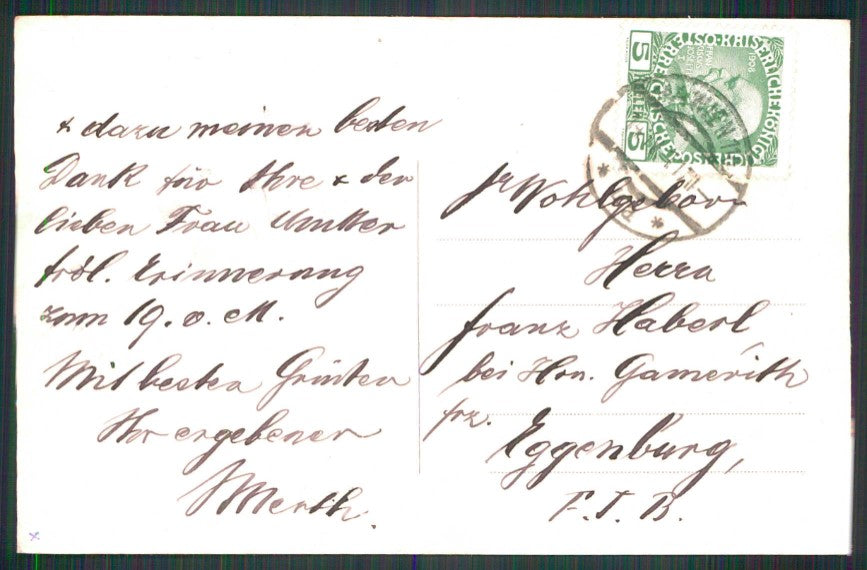 & dazu meinen besten
Dank für Ihre & der
lieben Frau Mutter
frdl. Erinnerung
zum 19. v. M.
Mit besten Grüßen
Ihr ergebener
Werth.
Wohlgebor
Herrn
Franz Haberl
bei Hrn. Gamerith
frz.
Eggenburg,
F. J. B.
KAISERLICHE KÖNIGL
ÖSTERREICHISCHE
1908
5 HELLER 5
WIEN